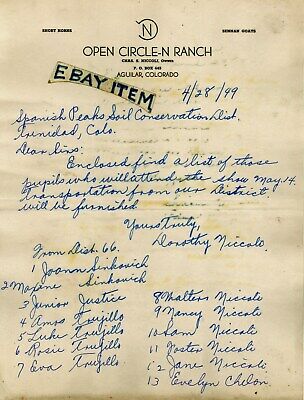 SHORT HORNS
SENNAN GOATS
N
OPEN CIRCLE-N RANCH
CHAS. S. NICCOLI, Owner
P. O. BOX 445
AGUILAR, COLORADO
EBAY ITEM
4/28/49
Spanish Peaks Soil Conservation Dist.
Trinidad, Colo.
Dear Sirs:
Enclosed find a list of those
pupils who will attend the show May 14.
Transportation from our District
will be furnished
Yours truly,
Dorothy Niccoli
From Dist. 66.
1 Joann Sinkovich
2 Maxene Sinkovich
3 Junior Justice
4 Amos Trujillo
5 Luke Trujillo
6 Rosie Trujillo
7 Eva Trujillo
8 Walters Niccoli
9 Nancy Niccoli
10 Sam Niccoli
11 Foster Niccoli
12 Jane Niccoli
13 Evelyn